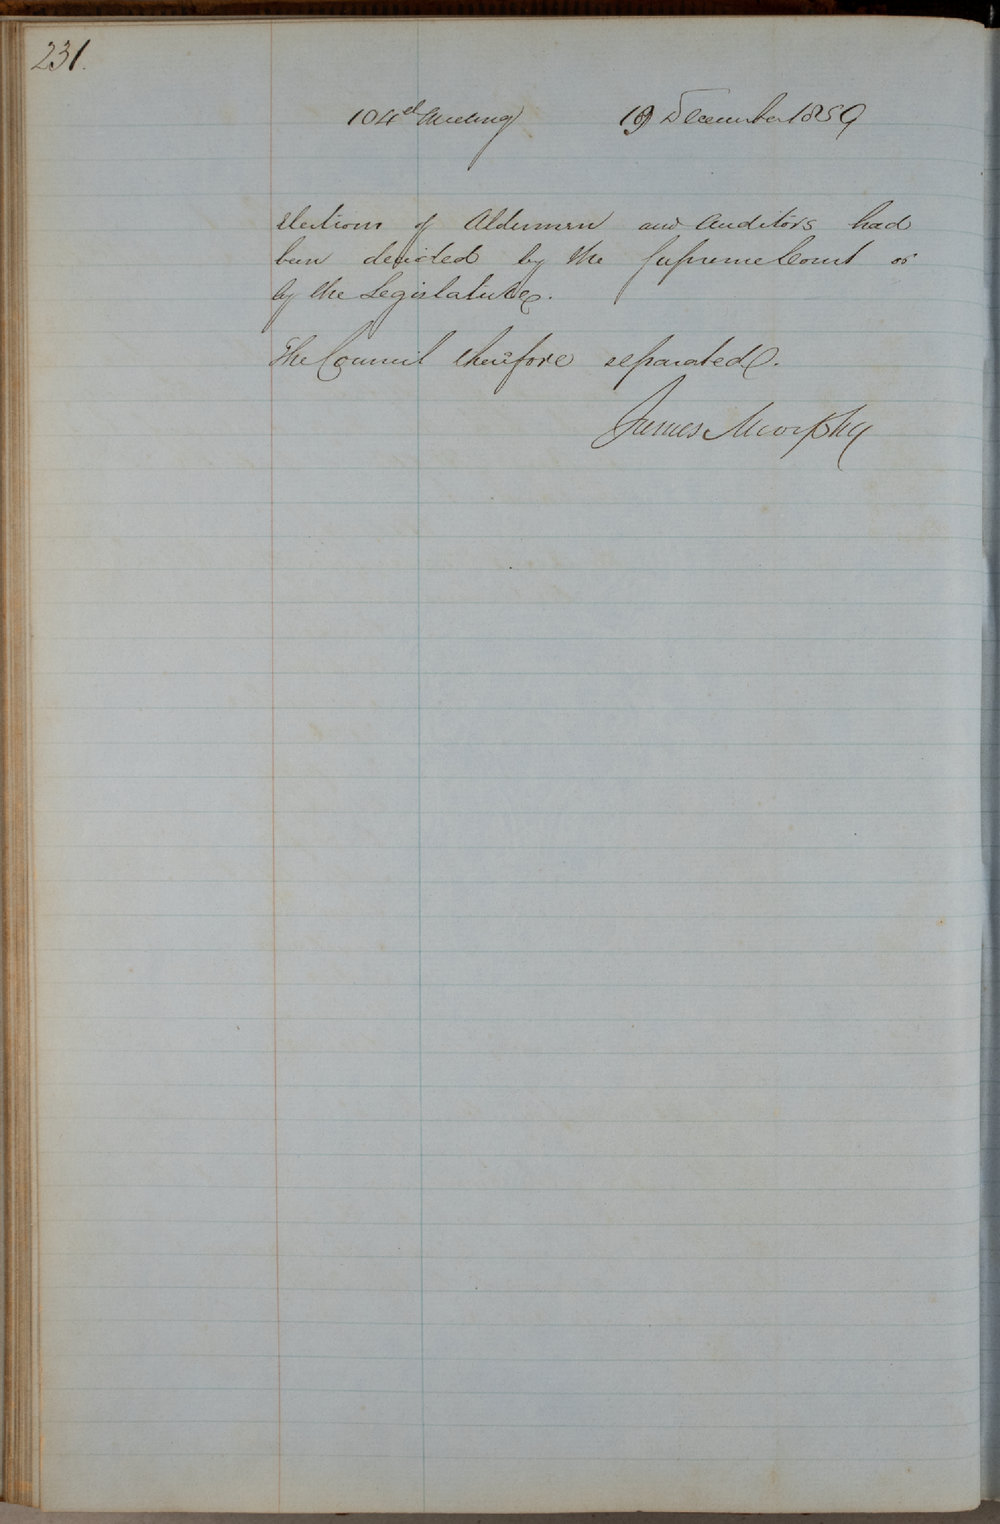 231.
104th Meeting 19 December 1859
Elections of Aldermen and Auditors had
been decided by the Supreme Court or
by the Legislature.
The Council therefore separated.
James Murphy